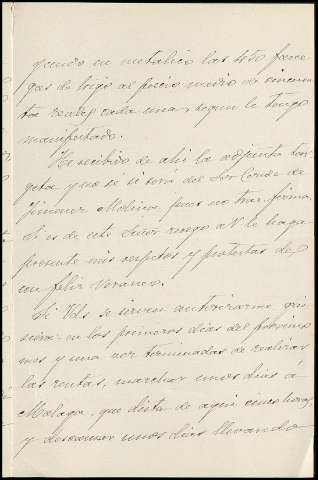 yendo en metalico las 450 fane
gas de trigo al precio medio de cincuen
ta reales cada una, segun le tengo
manifestado.
He recibido de ahi la adjunta tar
geta y no sé si será del Sor Conde de
Jimenez Molina, pues no trae firma.
Si es de este Señor ruego a V le haga
presente mis respetos y protestas de
un feliz Veraneo.
Si Vds se sirven autorizarme qui
siera en los primeros dias del proximo
mes y una vez terminadas de realizar
las rentas, marchar unos dias á
Malaga, que dista de aqui cinco horas
y descansar unos dias llevando